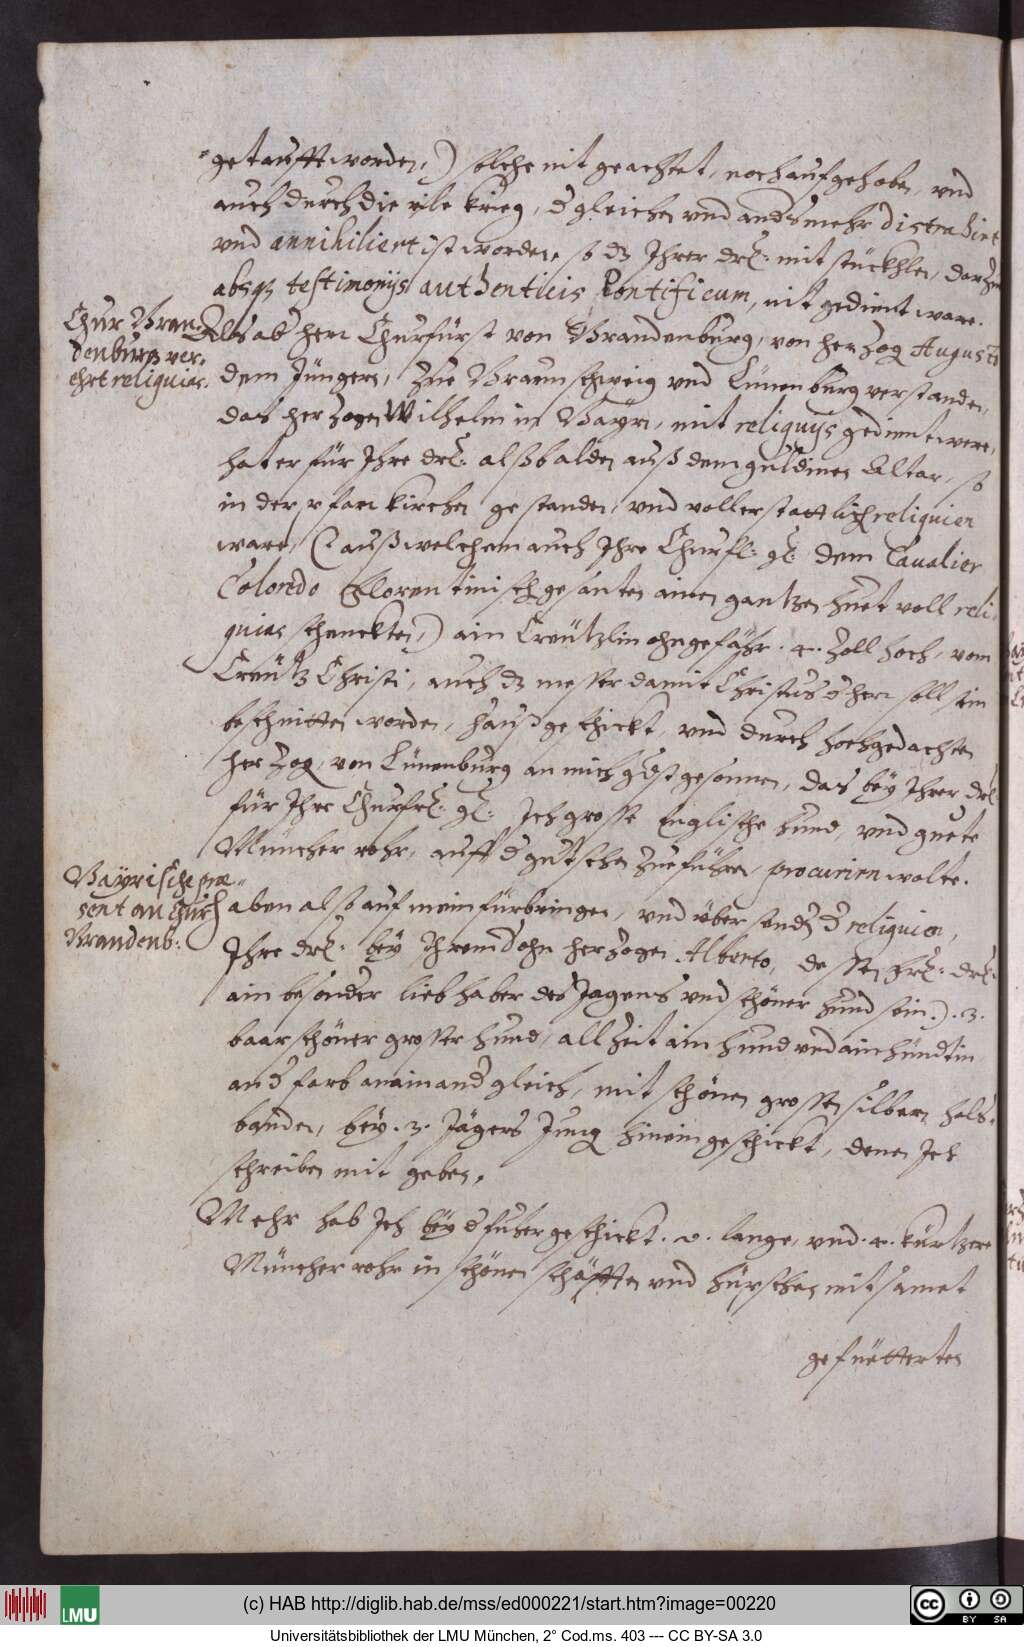 getaufft worden,) solche nit geachtet, noch aufgehoben, vnd
auch durch die vile krieg, dgleichen vnd anders mehr distrahirt
vnd annihiliert ist worden, so dz Ihrer drl: mit stückhlen, darzu
absq; testimonijs authenticis Pontificum, nit gedient ware.
Chur Bran-
denburg ver-
ehrt reliquien.
Als aber herr Churfürst von Brandenburg, von herzog Augusto
dem Jüngern, zue Braunschweig vnd Lünenburg verstanden,
das herzogen Wilhelm in Bayrn, mit reliquijs gedient were,
hat er für Ihre drl: alßbalden auß dem guldinen Altar, so
in der pfarrkirchen gestanden, vnd voller stattlich reliquien
ware, (auß welchem auch Ihre Churfl: gl: dem Caualier
Coloredo Florentinisch gesanten ainen gantzen huet voll reli-
quias schenckten,) ain Creützlin ohngefähr .4. Zoll hoch, vom
Creütz Christi, auch dz messer damit Christus d herr soll sein
beschnitten worden, herauß geschickt, vnd durch hochgedachten
herzog, von Lünenburg an mich gdst gesonnen, das bey Ihrer drl:
für Ihre Churfl: gl: Ich grosse Englische hund, vnd guete
Müncher rohr, auff d gutschen zue führen, procurirn wolte.
Bayrische præ-
sent an Chur
Brandenb:
haben also auf mein fürbringen, vnd übersendtd reliquien,
Ihre drl: bey Ihrem Sohn herzogen Alberto, dessen frl: drl:
ain besonder liebhaber des Jagens vnd schöner hund sein.) .3.
baar schöner grosser hund, allzeit ain hund vnd ain hündtin
and farb anainand gleich, mit schönen grossen silbern hals-
banden, bey .3. Jägers Jung hinein geschickt, denen Ich
schreiben mit geben.
Mehr hab Ich bey d fuhr geschickt .2. lange, vnd .4. kürtzere
Müncher rohr in schönen schäfften vnd hürschen mit samet
gefuetterten
(c) HAB http://diglib.hab.de/mss/ed000221/start.htm?image=00220
LMU
cc BY SA
Universitätsbibliothek der LMU München, 2° Cod.ms. 403 --- CC BY-SA 3.0